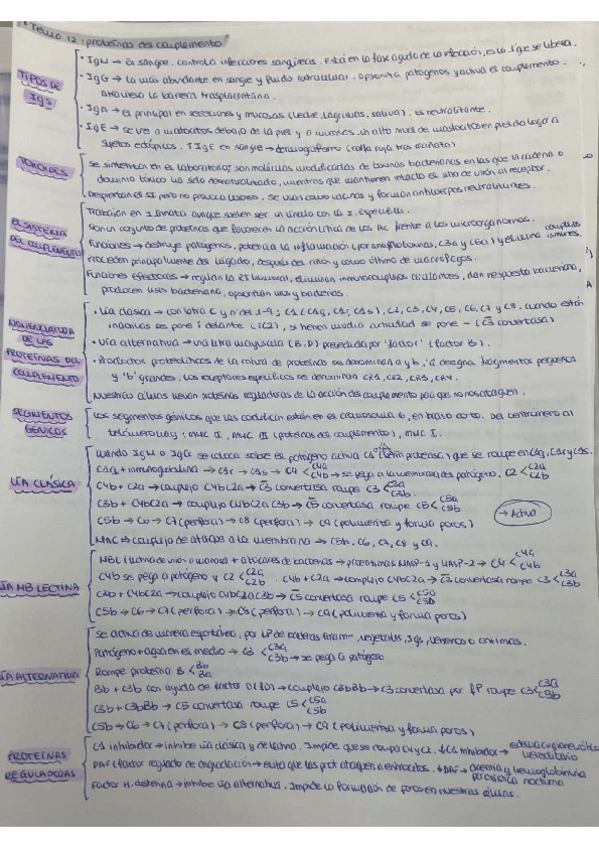 Tema 12: proteínas del complemento
TIPOS DE IGS
· IgM → En sangre. Controla infecciones sanguíneas. Está en la fase aguda de la infección, es la Ig que se libera.
· IgG → la más abundante en sangre y fluido extracelular. Opsoniza patógenos y activa el complemento.
Atraviesa la barrera trasplacentaria.
· IgA → es principal en secreciones y mucosas (leche, lágrimas, saliva). Es neutralizante.
· IgE → se une a mastocitos debajo de la piel y a mucosas. Un alto nivel de mastocitos en piel da lugar a
sujetos atópicos. ↑IgE en sangre → dermografismo (ralla roja tras arañazo)
TOXOIDES
Se sintetizan en el laboratorio, son moléculas modificadas de toxinas bacterianas en las que la cadena o
dominio tóxico ha sido desnaturalizado, mientras que mantienen intacto el sitio de unión al receptor.
Despiertan el SI pero no provocan daños. Se usan como vacunas y forman anticuerpos neutralizantes.
EL SISTEMA DEL COMPLEMENTO
Trabajan en I. innata aunque suelen ser un vínculo con la I. específica.
Son un conjunto de proteínas que favorecen la acción lítica de los Ac frente a los microorganismos.
Funciones → destruye patógenos, potencia la inflamación (por anafilotoxinas, C3a y C5a) y elimina complejos inmunes.
Proceden principalmente del hígado, después del riñón y como último de macrófagos.
Funciones efectoras → regulan la RI humoral, eliminan inmunocomplejos circulantes, dan respuesta bacteriana,
producen lisis bacteriana, opsonizan virus y bacterias.
NOMENCLATURA DE LAS PROTEÍNAS DEL COMPLEMENTO
· Vía clásica → con letra C y nº del 1-9; C1 (C1q, C1r, C1s), C2, C3, C4, C5, C6, C7 y C8. Cuando están
inactivas se pone i delante (iC2), si tienen mucha actividad se pone – (C̄3 convertasa)
· Vía alternativa → una letra mayúscula (B, D) precedida por 'factor' (factor B).
· Productos proteolíticos de la rotura de proteínas se denominan a y b, 'a' designa fragmentos pequeños
y 'b' grandes. Los receptores específicos se denominan CR1, CR2, CR3, CR4.
Nuestras células llevan proteínas reguladoras de la acción del complemento para que no nos ataquen.
SEGMENTOS GÉNICOS
Los segmentos génicos que las codifican están en el cromosoma 6, en brazo corto. Del centrómero al
telómero hay: MHC II, MHC III (proteínas del complemento), MHC I.
VÍA CLÁSICA
Cuando IgM o IgGs se coloca sobre el patógeno activa C1 (serín proteasa), que se rompe en C1q, C1r y C1s.
C1q + inmunoglobulina → C1r → C1s → C4 < C4a C4b → se pega a la membrana del patógeno. C2 < C2a C2b
C4b + C2a → complejo C4bC2a → C̄3 convertasa rompe C3 < C3a C3b.
C3b + C4bC2a → complejo C4bC2aC3b → C̄5 convertasa rompe C5 < C5a C5b
C5b → C6 → C7 (perfora) → C8 (perfora) → C9 (polimeriza y forma poros)
→ Activa
MAC → complejo de ataque a la membrana → C5b, C6, C7, C8 y C9.
VÍA MB LECTINA
MBL (lectina de unión a manosa) + azúcares de bacterias → proteasas MASP-1 y MASP-2 → C4 < C4a C4b
C4b se pega a patógeno y C2 < C2a C2b. C4b + C2a → complejo C4bC2a → C̄3 convertasa rompe C3 < C3a C3b
C3b + C4bC2a → complejo C4bC2aC3b → C̄5 convertasa rompe C5 < C5a C5b
C5b → C6 → C7 (perfora) → C8 (perfora) → C9 (polimeriza y forma poros)
VÍA ALTERNATIVA
Se activa de manera espontánea, por LP de bacterias Gram–, vegetales, Igs, venenos o enzimas.
Patógeno + agua en el medio → C3 < C3a C3b → se pega a patógeno
Rompe proteína B < Bb Ba
Bb + C3b con ayuda de factor D (fD) → complejo C3bBb → C3 convertasa por fP rompe C3 < C3a C3b
C3b + C3bBb → C5 convertasa rompe C5 < C5a C5b
C5b → C6 → C7 (perfora) → C8 (perfora) → C9 (polimeriza y forma poros)
PROTEÍNAS REGULADORAS
C1 inhibidor → inhibe vía clásica y de lectina. Impide que se rompa C4 y C2. ↓C1 inhibidor → edema angioneurótico hereditario
DAF (factor regulado de degradación) → evita que las prot ataquen a eritrocitos. ↓DAF → anemia y hemoglobinuria paroxística nocturna
Factor H, → inhibe vía alternativa. Impide la formación de poros en nuestras células.